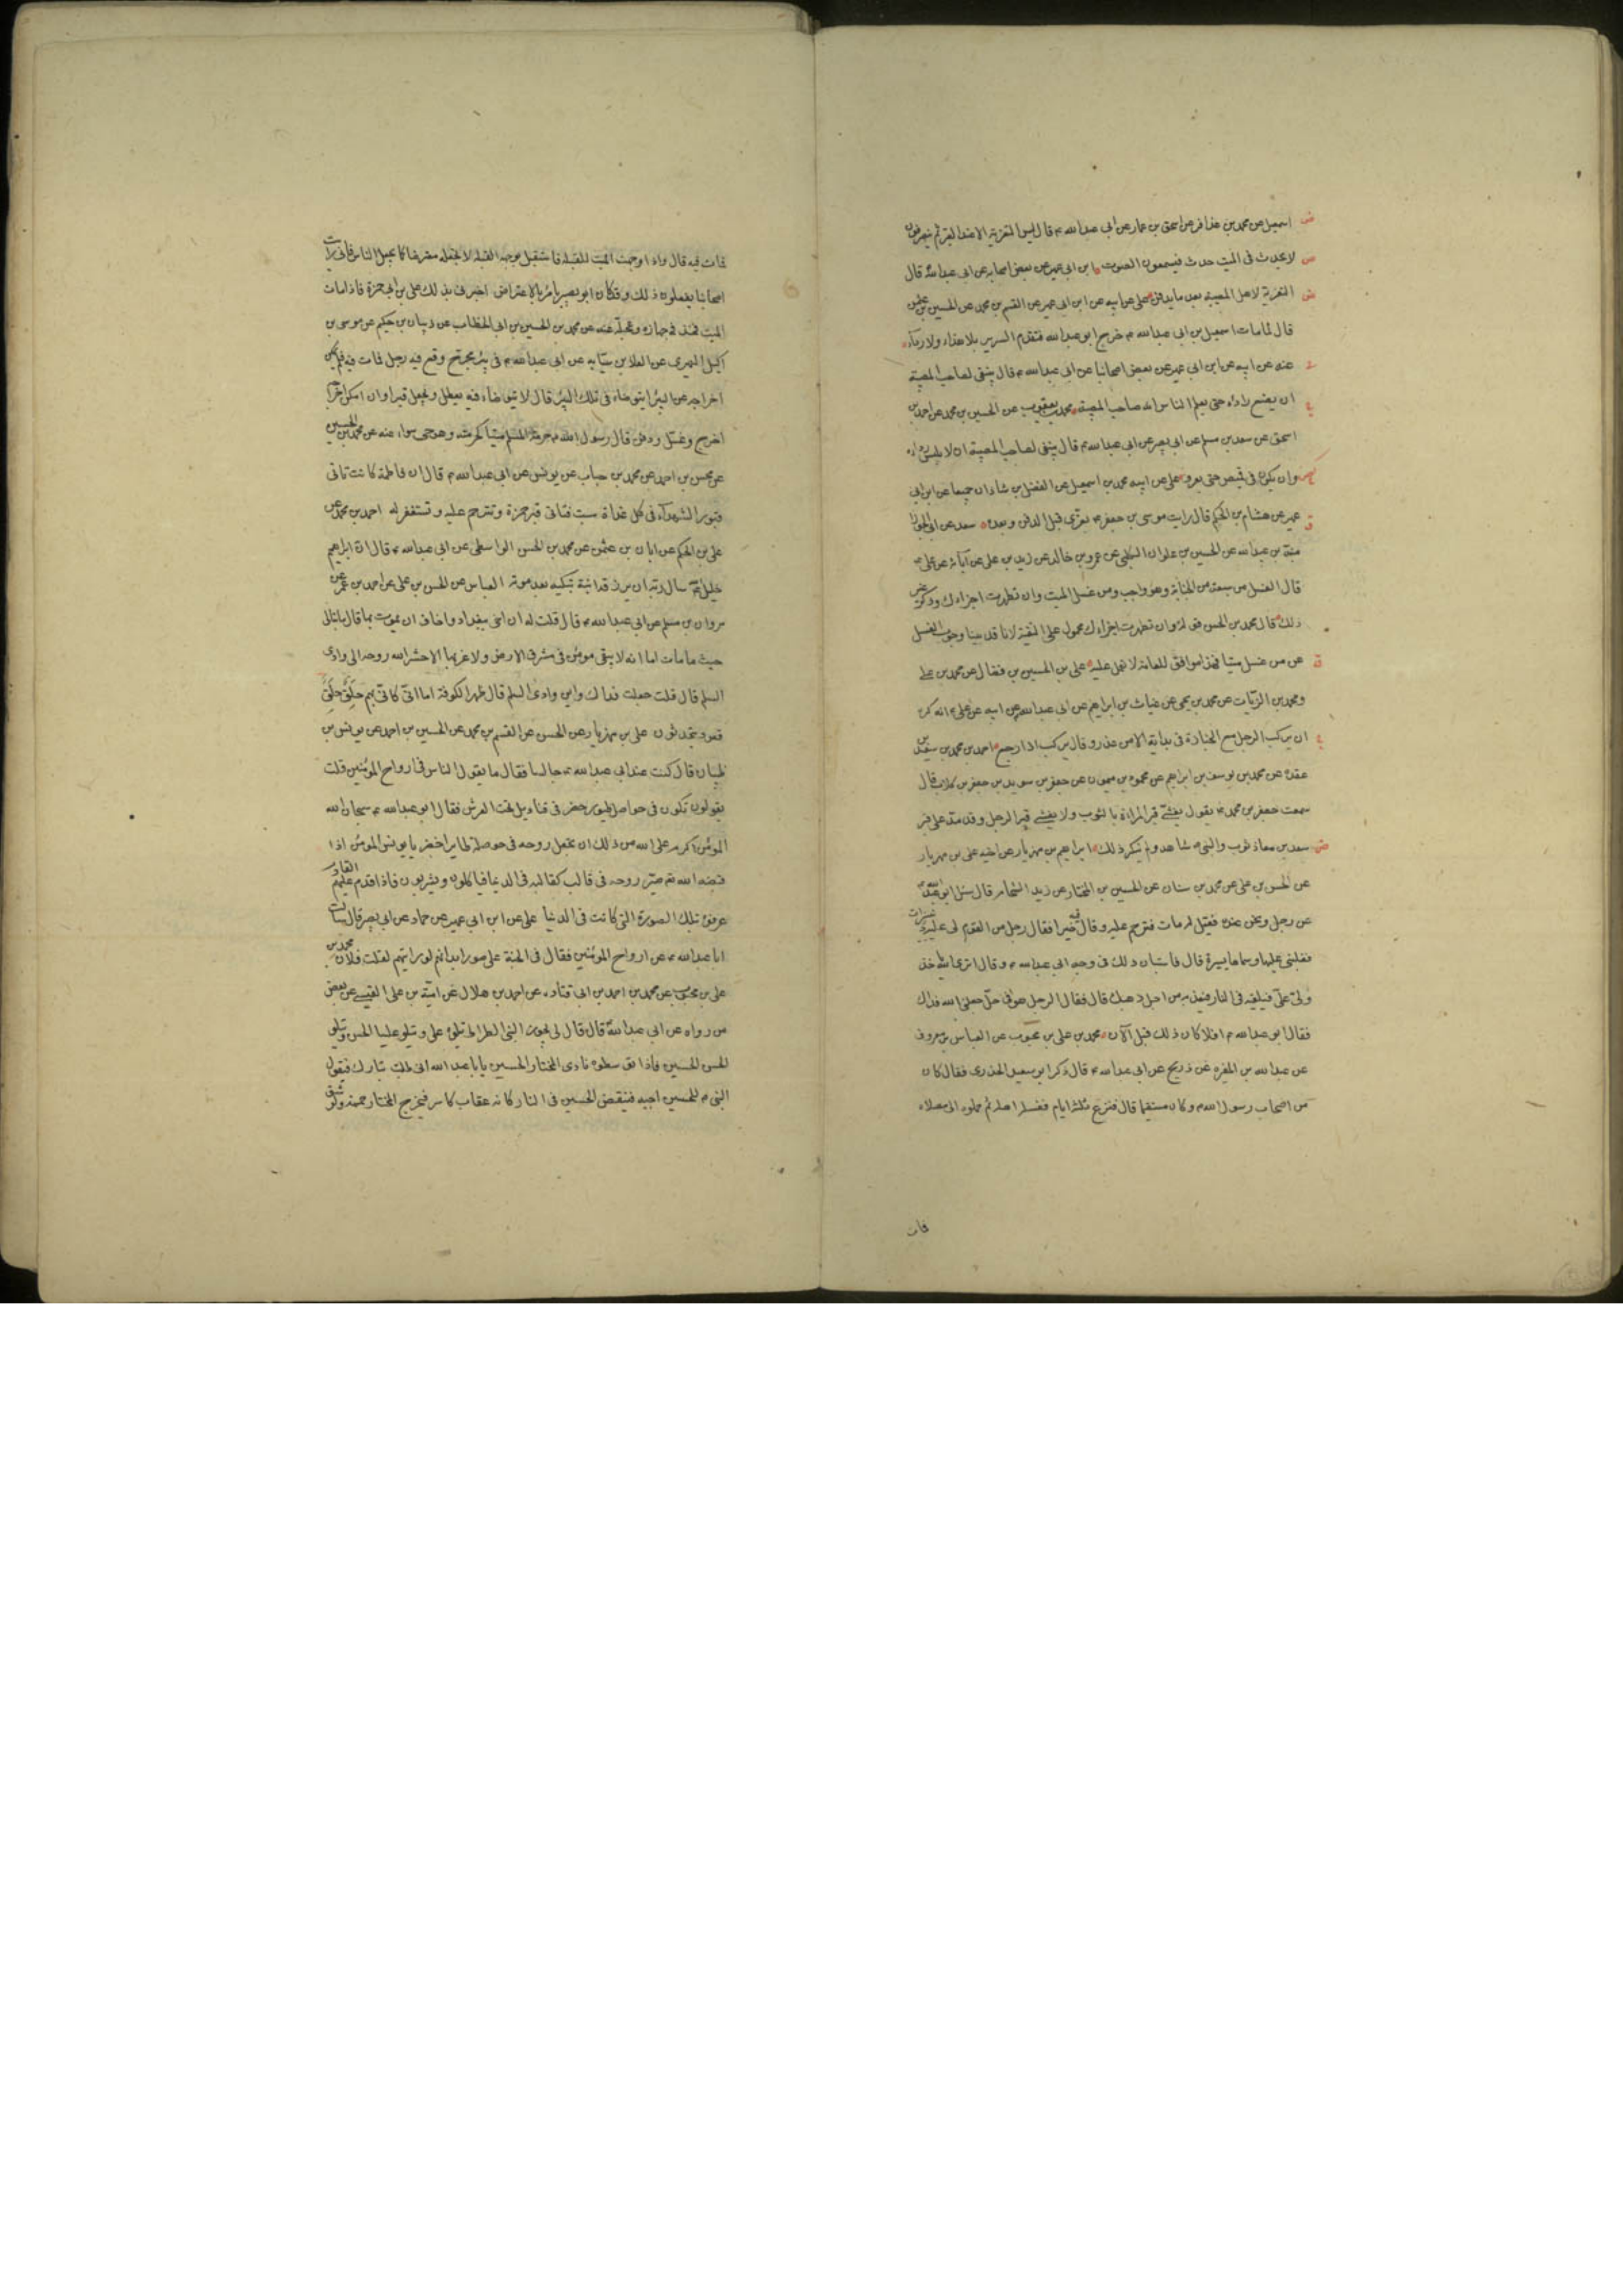 اسمعيل عن محمد بن عذافر عن اسحق بن عمار عن ابى عبد الله ع قال ليس التعزية الا عند القبر ثم ينصرفون
لا يحدث فى الميت حدث فيسمعون الصوت ابن ابى عمير عن بعض اصحابه عن ابى عبد الله قال
التعزية لاهل المصيبة بعد ما يدفن على عن ابيه عن ابن ابى عمير عن القسم بن محمد عن الحسين بن
قال لما مات اسمعيل بن ابى عبد الله ع خرج ابو عبد الله فتقدم السرير بلا حذاء ولا رداء
عنه عن ابيه عن ابن ابى عمير عن بعض اصحابنا عن ابى عبد الله ع قال ينبغى لصاحب المصيبة
ان يضع رداءه حتى يعلم الناس انه صاحب المصيبة محمد بن يعقوب عن الحسين بن محمد عن احمد بن
اسحق عن سعدان بن مسلم عن ابى بصير عن ابى عبد الله ع قال ينبغى لصاحب المصيبة ان لا يلبس رداء
وان يكون فى قميص حتى يعرف على عن ابيه محمد بن اسمعيل عن الفضل بن شاذان جميعا عن ابن ابى
عمير عن هشام بن الحكم قال رايت موسى بن جعفر ع يعزى قبل الدفن وبعده سعد عن ابى الجوزا
منبه بن عبد الله عن الحسين بن علوان الكلبى عن عمرو بن خالد عن زيد بن على عن آبائه عن على ع
قال الغسل من سبعة من الجنابة وهو واجب ومن غسل الميت وان تطهرت اجزاءك وذكر غير
ذلك قال محمد بن الحسن قوله وان تطهرت اجزاءك محمول على التقية لانا قد بينا وجوب الغسل
على من غسل ميتا فهذا موافق للعامة لا نعمل عليه على بن الحسين بن فضال عن محمد بن على
ومحمد بن الزيات عن محمد بن يحيى عن غياث بن ابراهيم عن ابى عبد الله عن ابيه عن على ع انه كره
ان يركب الرجل مع الجنازة فى بداية الا من عذر وقال يركب اذا رجع احمد بن محمد بن سعيد بن
عقدة عن محمد بن يوسف بن ابراهيم عن محمود بن ميمون عن جعفر بن سويد بن جعفر بن كلاب قال
سمعت جعفر بن محمد ع يقول يغشى قبر المراة بالثوب ولا يغشى قبر الرجل وقد مد على قبر
سعد بن معاذ ثوب والنبى ص شاهد ولم ينكر ذلك ابراهيم بن مهزيار عن اخيه على بن مهزيار
عن الحسن بن على عن محمد بن سنان عن الحسين بن المختار عن زيد الشحام قال سئل ابو عبد الله
عن رجل ونحن عنده فقيل له مات فترحم عليه وقال فيه خيرا فقال رجل من القوم لى عليه
فغلبنى عليها وسماها يسيرة قال فاستبان ذلك فى وجه ابى عبد الله ع وقال اترى الله ياخذ
ولى على فيلقيه فى النار فيعذبه من اجل ذهبك قال فقال الرجل هو فى حل جعلنى الله فداك
فقال ابو عبد الله ع افلا كان ذلك قبل الآن محمد بن على بن محبوب عن العباس بن معروف
عن عبد الله بن المغيرة عن ذريح عن ابى عبد الله ع قال ذكر ابو سعيد الخدرى فقال كان
من اصحاب رسول الله ص وكان مستقيما قال فنزع ثلثة ايام فغسله اهله ثم حملوه الى مصلاه
فمات
فمات فيه قال واذا وجهت الميت للقبلة فاستقبل بوجهه القبلة لا تجعله معترضا كما يجعل الناس فانى رايت
اصحابنا يفعلون ذلك وقد كان ابو بصير يامر بالاعتراض اخبرنى بذلك على بن ابى حمزة فاذا مات
الميت فخذ فى جهازه وعجله عنه عن محمد بن الحسين بن ابى الخطاب عن ذبيان بن حكيم عن موسى بن
اكيل النميرى عن العلا بن سيابه عن ابى عبد الله ع فى بئر محرج وقع فيه رجل فمات فيه فلم يمكن
اخراجه من البئر ايتوضاء فى تلك البئر قال لا يتوضاء فيه يعطل ويجعل قبرا وان امكن اخراجه
اخرج وغسل ودفن قال رسول الله ص حرمة المسلم ميتا كحرمته وهو حى سواء عنه عن محمد بن الحسين
عن محسن بن احمد عن محمد بن جناب عن يونس عن ابى عبد الله ع قال ان فاطمة كانت تاتى
قبور الشهداء فى كل غداة سبت فتاتى قبر حمزة وتترحم عليه وتستغفر له احمد بن محمد عن
على بن الحكم عن ابان بن عثمن عن محمد بن الحسن الواسطى عن ابى عبد الله ع قال ان ابراهيم
خليل الله سال ربه ان يرزقه ابنة تبكيه بعد موته العباس عن الحسن بن على عن احمد بن عمر عن
مروان بن مسلم عن ابى عبد الله ع قال قلت له ان اخى ببغداد واخاف ان يموت بها قال ما تبالى
حيث ما مات اما انه لا يبقى مومن فى شرق الارض ولا غربها الا حشر الله روحه الى وادى
السلم قال قلت جعلت فداك واين وادى السلم قال ظهر الكوفة اما انى كانى بهم حلق حلق
قعود يتحدثون على بن مهزيار عن الحسن عن القسم بن محمد عن الحسين بن احمد عن يونس بن
ظبيان قال كنت عند ابى عبد الله ع جالسا فقال ما يقول الناس فى ارواح المومنين قلت
يقولون تكون فى حواصل طيور خضر فى قناديل تحت العرش فقال ابو عبد الله ع سبحان الله
المومن اكرم على الله من ذلك ان يجعل روحه فى حوصلة طاير اخضر يا يونس المومن اذا
قبضه الله تع صير روحه فى قالب كقالبه فى الدنيا فياكلون ويشربون فاذا قدم عليهم القادم
عرفوه بتلك الصورة التى كانت فى الدنيا على عن ابن ابى عمير عن حماد عن ابى بصير قال سالت
ابا عبد الله ع عن ارواح المومنين فقال فى الجنة على صور ابدانهم لو رايتهم لقلت فلان محمد بن
على بن محبوب عن محمد بن احمد بن ابى قتاده عن احمد بن هلال عن امية بن على القيسى عن بعض
من رواه عن ابى عبد الله قال قال لى يجوز النبى الصراط يتلوه على ويتلو عليا الحسن ويتلو
الحسن الحسين فاذا توسطوه نادى المختار الحسين يا ابا عبد الله انى طلبت بثارك فيقول
النبى ص للحسين اجبه فينقض الحسين فى النار كانه عقاب كاسر فيخرج المختار حممة ولو شق